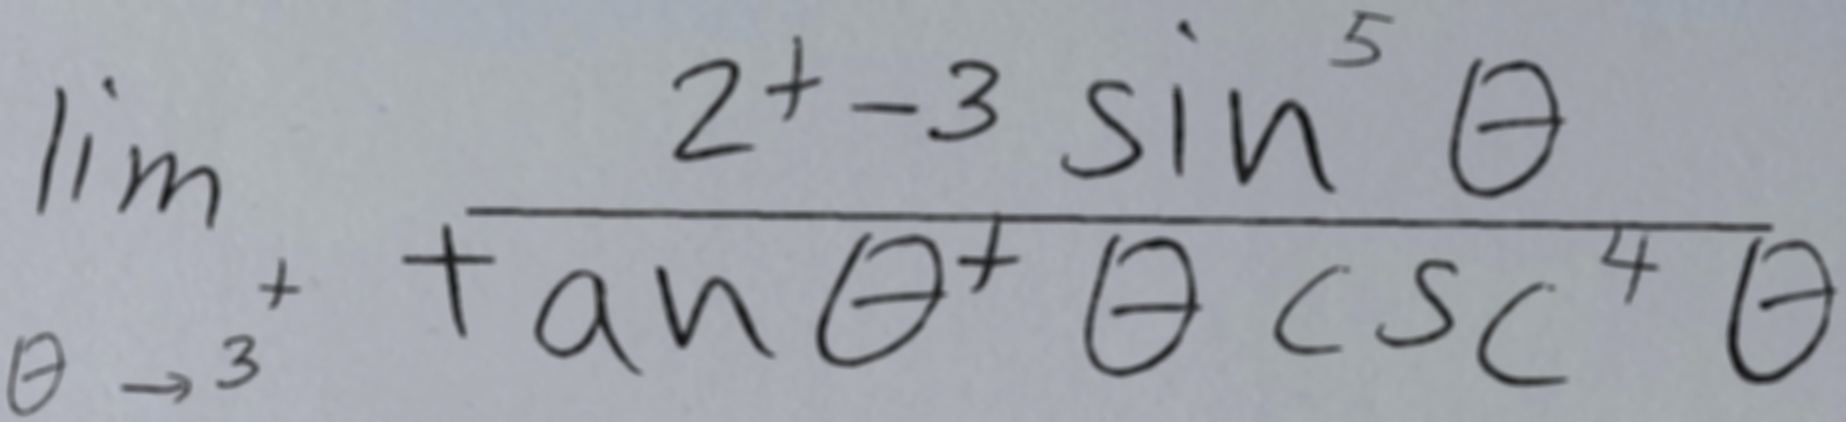 \lim_{\theta \to 3^+} \frac{2^+ - 3 \sin^5 \theta}{\tan \theta + \theta \csc^4 \theta}